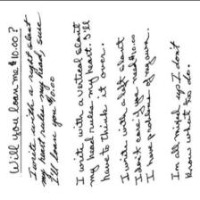 Will you loan me $10.00?
I write with a right slant
my heart rules my head, sure
I'll loan you $10.00
I write with a vertical slant
my head rules my heart. I'll
have to think it over.
I write with a left slant
I don't care if you need $10.00
I have problems of my own.
I'm all mixed up I don't
know what to do.